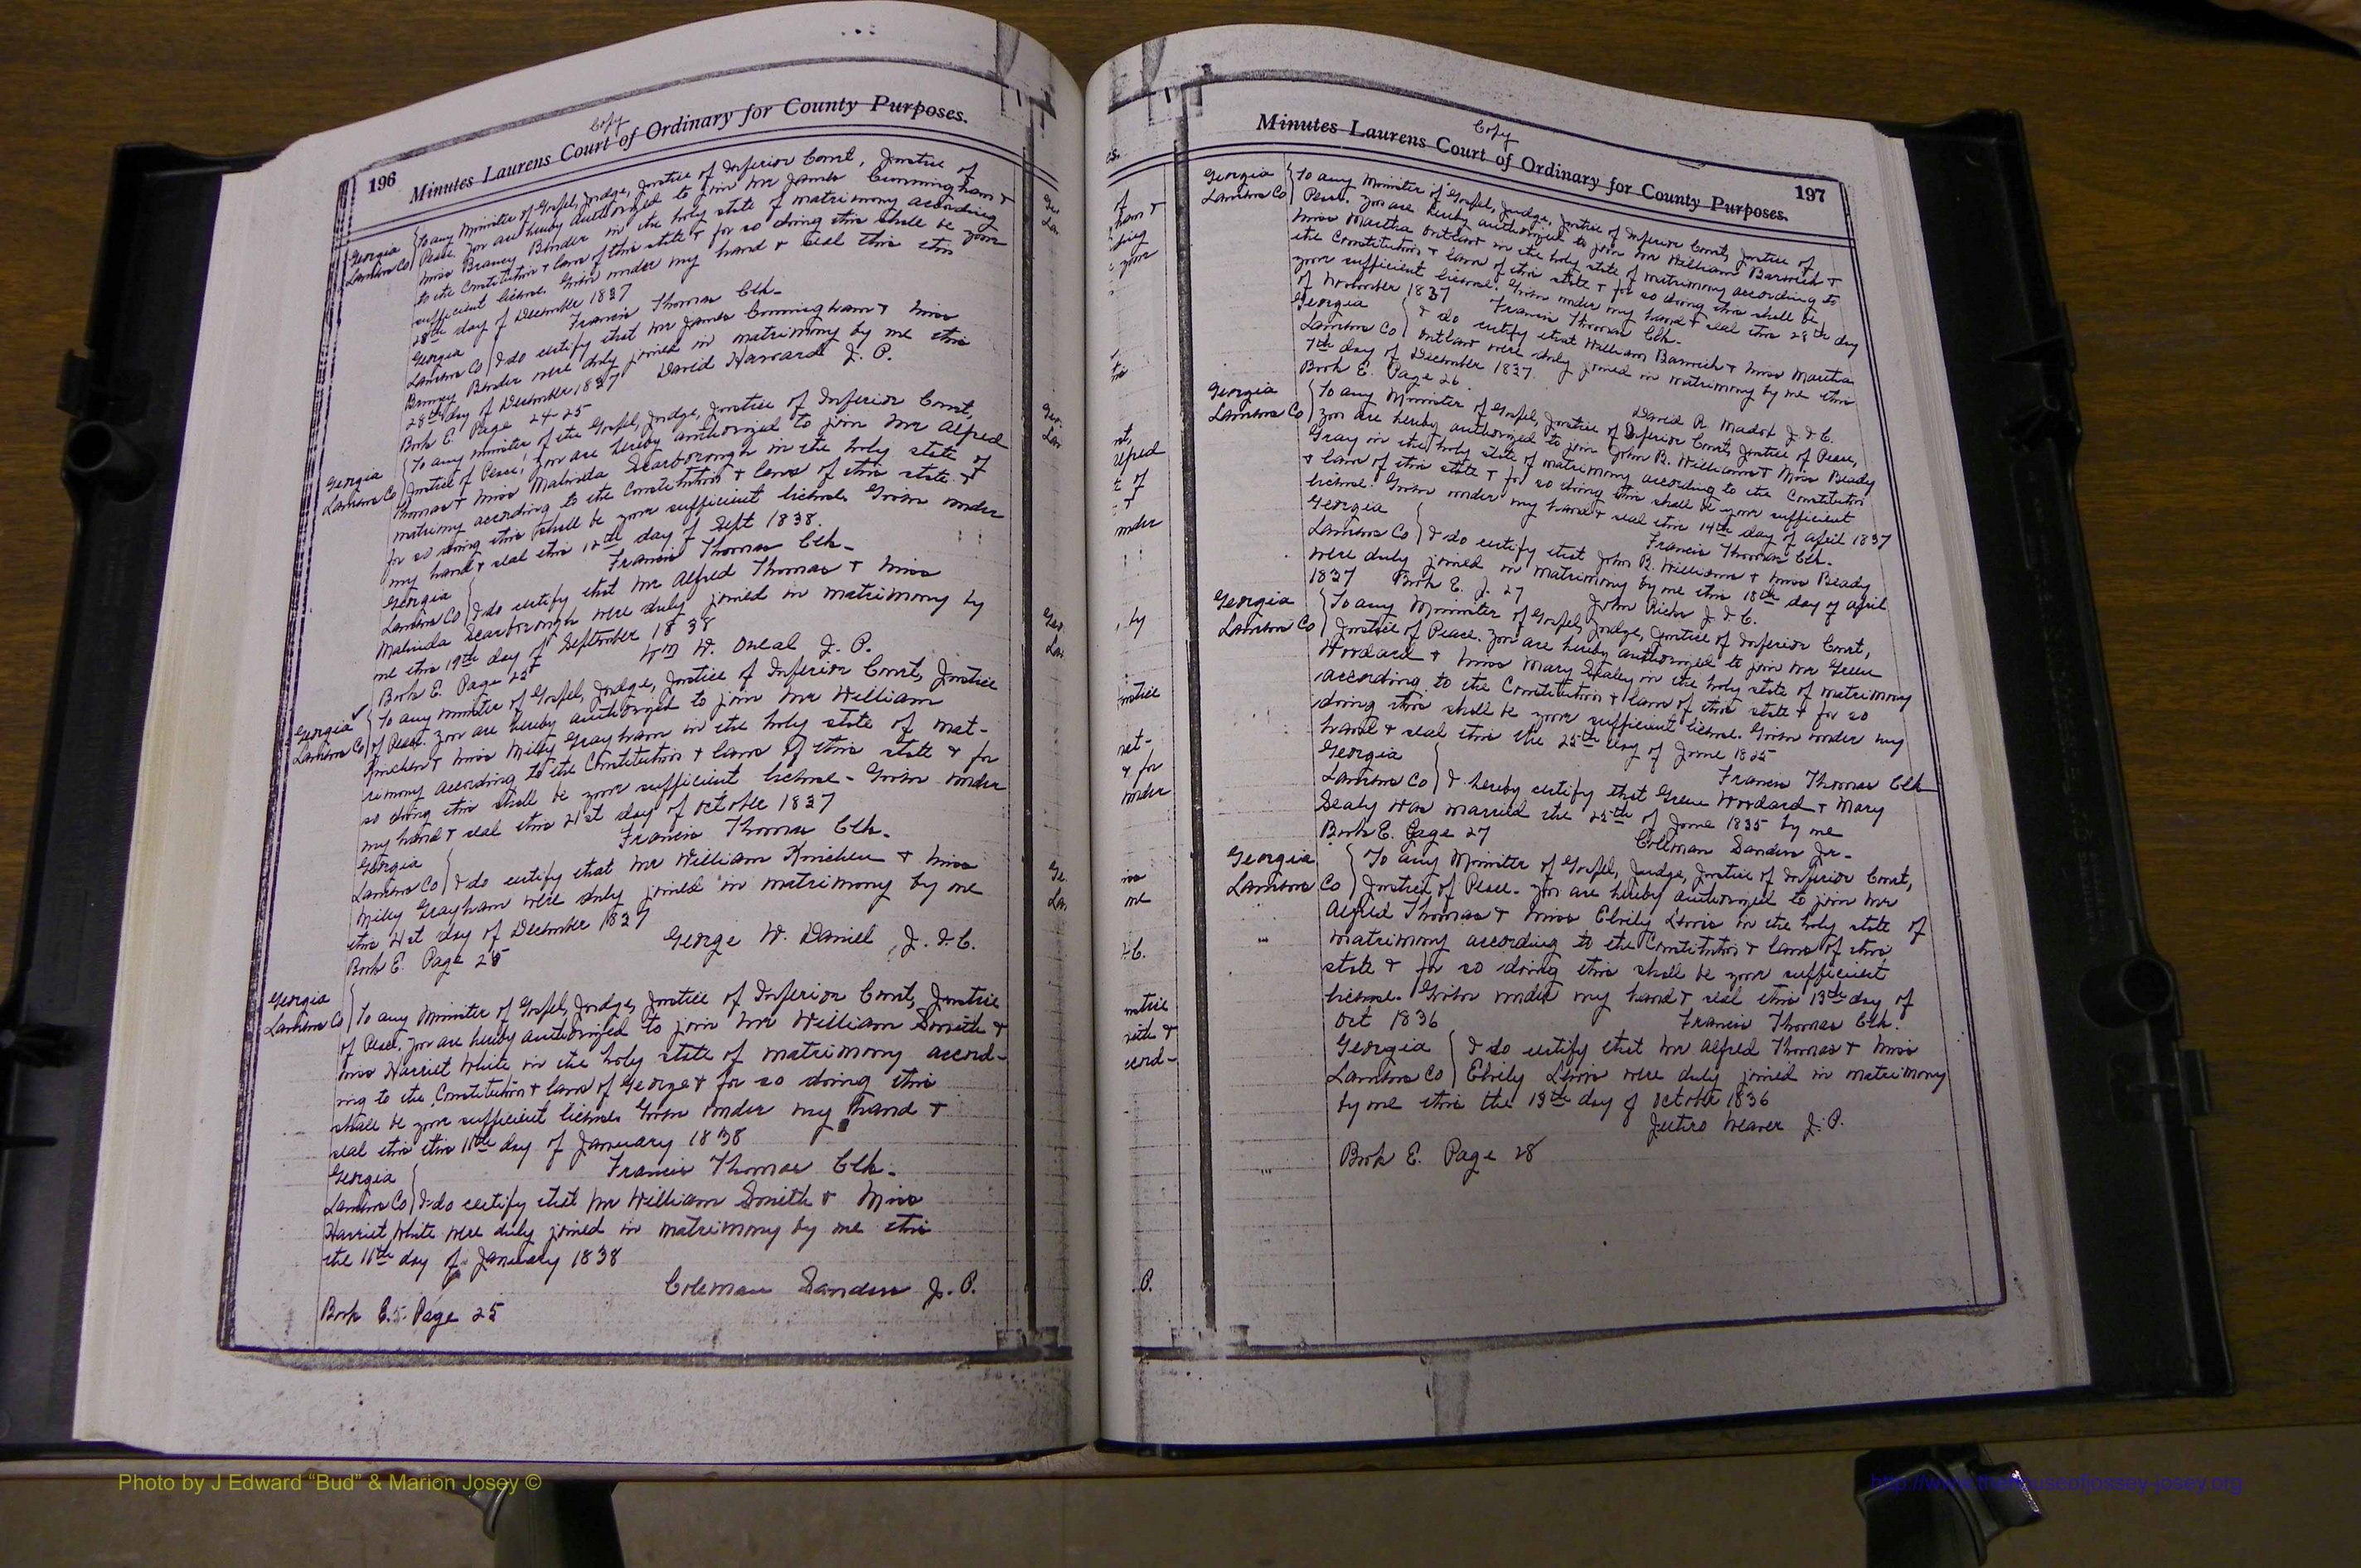 Copy
196 Minutes Laurens Court of Ordinary for County Purposes.
Georgia
Laurens Co
To any Minister of Gospel, Judge, Justice of Inferior Court, Justice of
Peace. you are hereby authorized to join Mr James Cunningham &
Miss Binder in the holy state of matrimony according
to the Constitution & laws of this state & for so doing this shall be your
sufficient license. Given under my hand & seal this
28th day of December 1837
Francis Thomas Clk.
Georgia
Laurens Co I do certify that Mr James Cunningham & Miss
Binder were duly joined in matrimony by me this
28th day of December 1837 David Harvard J. P.
Book E. Page 24-25
Georgia
Laurens Co
To any minister of the Gospel, Judge, Justice of Inferior Court,
Justice of Peace, you are hereby authorized to join Mr Alfred
Thomas & Miss Malinda Scarborough in the holy state of
matrimy according to the Constitution & laws of this state &
for so doing this shall be your sufficient license Given under
my hand & seal this 12th day of Sept 1838.
Francis Thomas Clk.
Georgia
Laurens Co I do certify that Mr Alfred Thomas & Miss
Malinda Scarborough were duly joined in matrimony by
me this 19th day of September 1838
Wm W. Oneal J. P.
Book E. Page 25
Georgia
Laurens Co
To any minister of Gospel, Judge, Justice of Inferior Court, Justice
of Peace. you are hereby authorized to join Mr William
Kinchen & Miss Milly Grayham in the holy state of mat-
rimony according to the Constitution & laws of this state & for
so doing this shall be your sufficient license - Given under
my hand & seal this 21st day of October 1837
Francis Thomas Clk.
Georgia
Laurens Co I do certify that Mr William Kinchen & Miss
Milly Grayham were duly joined in matrimony by me
this 21st day of December 1837
George W. Daniel, J. I. C.
Book E. Page 25
Georgia
Laurens Co
To any Minister of Gospel, Judge, Justice of Inferior Court, Justice
of Peace. you are hereby authorized to join Mr William Smith &
miss Harriet White in the holy state of matrimony accord-
ing to the Constitution & laws of George & for so doing this
shall be your sufficient license Given under my hand &
seal this this 11th day of January 1838
Francis Thomas Clk.
Georgia
Laurens Co I do certify that Mr William Smith & Miss
Harriet White were duly joined in matrimony by me this
the 11th day of January 1838
Coleman Sanders J. P.
Book E. Page 25
Copy
Minutes Laurens Court of Ordinary for County Purposes. 197
Georgia
Laurens Co
To any Minister of Gospel, Judge, Justice of Inferior Court, Justice of
Peace. you are hereby authorized to join Mr William Barwick &
Miss Martha Outlaw in the holy state of matrimony according to
the Constitution & laws of this state & for so doing this shall be
your sufficient license. Given under my hand & seal this 28th day
of November 1837 Francis Thomas Clk.
Georgia
Laurens Co I do certify that William Barwick & Miss Martha
Outlaw were duly joined in matrimony by me this
7th day of December 1837.
David R. J. I. C.
Book E. Page 26
Georgia
Laurens Co
To any Minister of Gospel, Justice of Inferior Court, Justice of Peace,
you are hereby authorized to join John B. Williams & Miss Beady
Gray in the holy state of matrimony according to the Constitution
& laws of this state & for so doing this shall be your sufficient
license. Given under my hand & seal this 14th day of April 1837
Francis Thomas Clk.
Georgia
Laurens Co I do certify that John B. Williams & Miss Beady
were duly joined in matrimony by me this 18th day of April
1837 Book E. p. 27 John J. I. C.
Georgia
Laurens Co
To any Minister of Gospel, Judge, Justice of Inferior Court,
Justice of Peace. you are hereby authorized to join Mr Green
Woodard & Miss Mary Sealey in the holy state of matrimony
according to the Constitution & laws of this state & for so
doing this shall be your sufficient license. Given under my
hand & seal this the 25th day of June 1825
Francis Thomas Clk
Georgia
Laurens Co I hereby certify that Green Woodard & Mary
Sealy was married the 25th of June 1835 by me
Book E. Page 27 Collman Sanders Jr.
Georgia
Laurens Co
To any Minister of Gospel, Judge, Justice of Inferior Court,
Justice of Peace. you are hereby authorized to join Mr
Alfred Thomas & Miss Elvily Lewis in the holy state of
matrimony according to the Constitution & laws of this
state & for so doing this shall be your sufficient
license. Given under my hand & seal this 13th day of
Oct 1836 Francis Thomas Clk.
Georgia I do certify that Mr Alfred Thomas & Miss
Laurens Co Elvily Lewis were duly joined in matrimony
by me this the 13th day of October 1836
Jethro Weaver J. P.
Book E. Page 28
Photo by J Edward “Bud” & Marion Josey ©
http://www.thehouseofjossey-josey.org